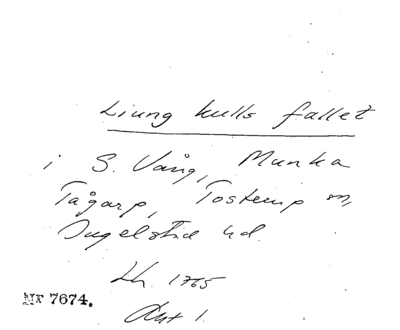 Liung kulls fallet
i S. Vång, Munka
Tågarp, Tosterup m,
Ingelstad hd.
Lh. 1765
Akt 1.
Nr 7674.